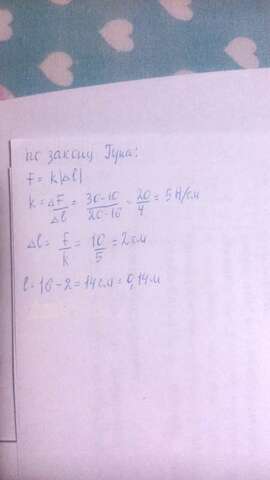 по закону Гука:
F = k|Δl|
k = ΔF/Δl = 30-10/20-16 = 20/4 = 5 Н/см
Δl = F/k = 10/5 = 2 см
l = 16 - 2 = 14 см = 0,14 м